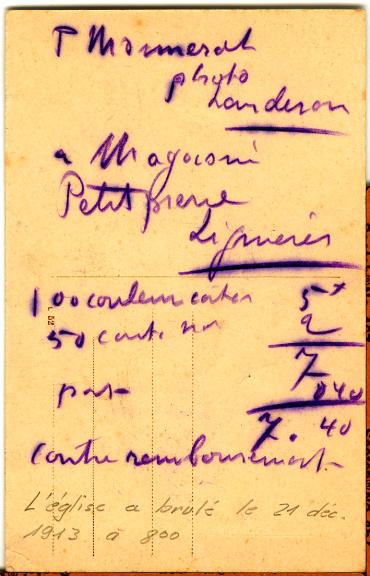 P Monnerat
photo
Landeron
a Magasin
Petitpierre
Lignieres
100 couleur cartes 5
50 carte noi 2
7
port 040
7.40
contre remboursement
L'église a brulé le 21 déc.
1913 à 800